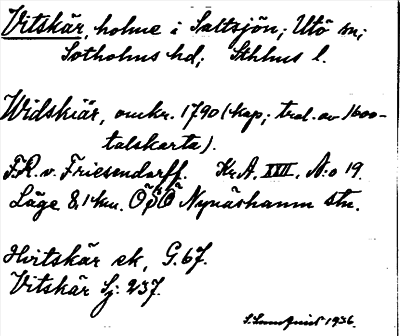 Vitskär, holme i Saltsjön; Utö sn;
Sotholms hd; Sthlms l.
Widskiär, omkr. 1790 (kop; trol. av 1600-
talskarta).
F.R. v. Friesendorff. Kr.A. XVII. N:o 19.
Läge 8,1 km. ÖSÖ Nynäshamn stn.
Hvitskär ek, G.67.
Vitskär Sj: 237.
1936.